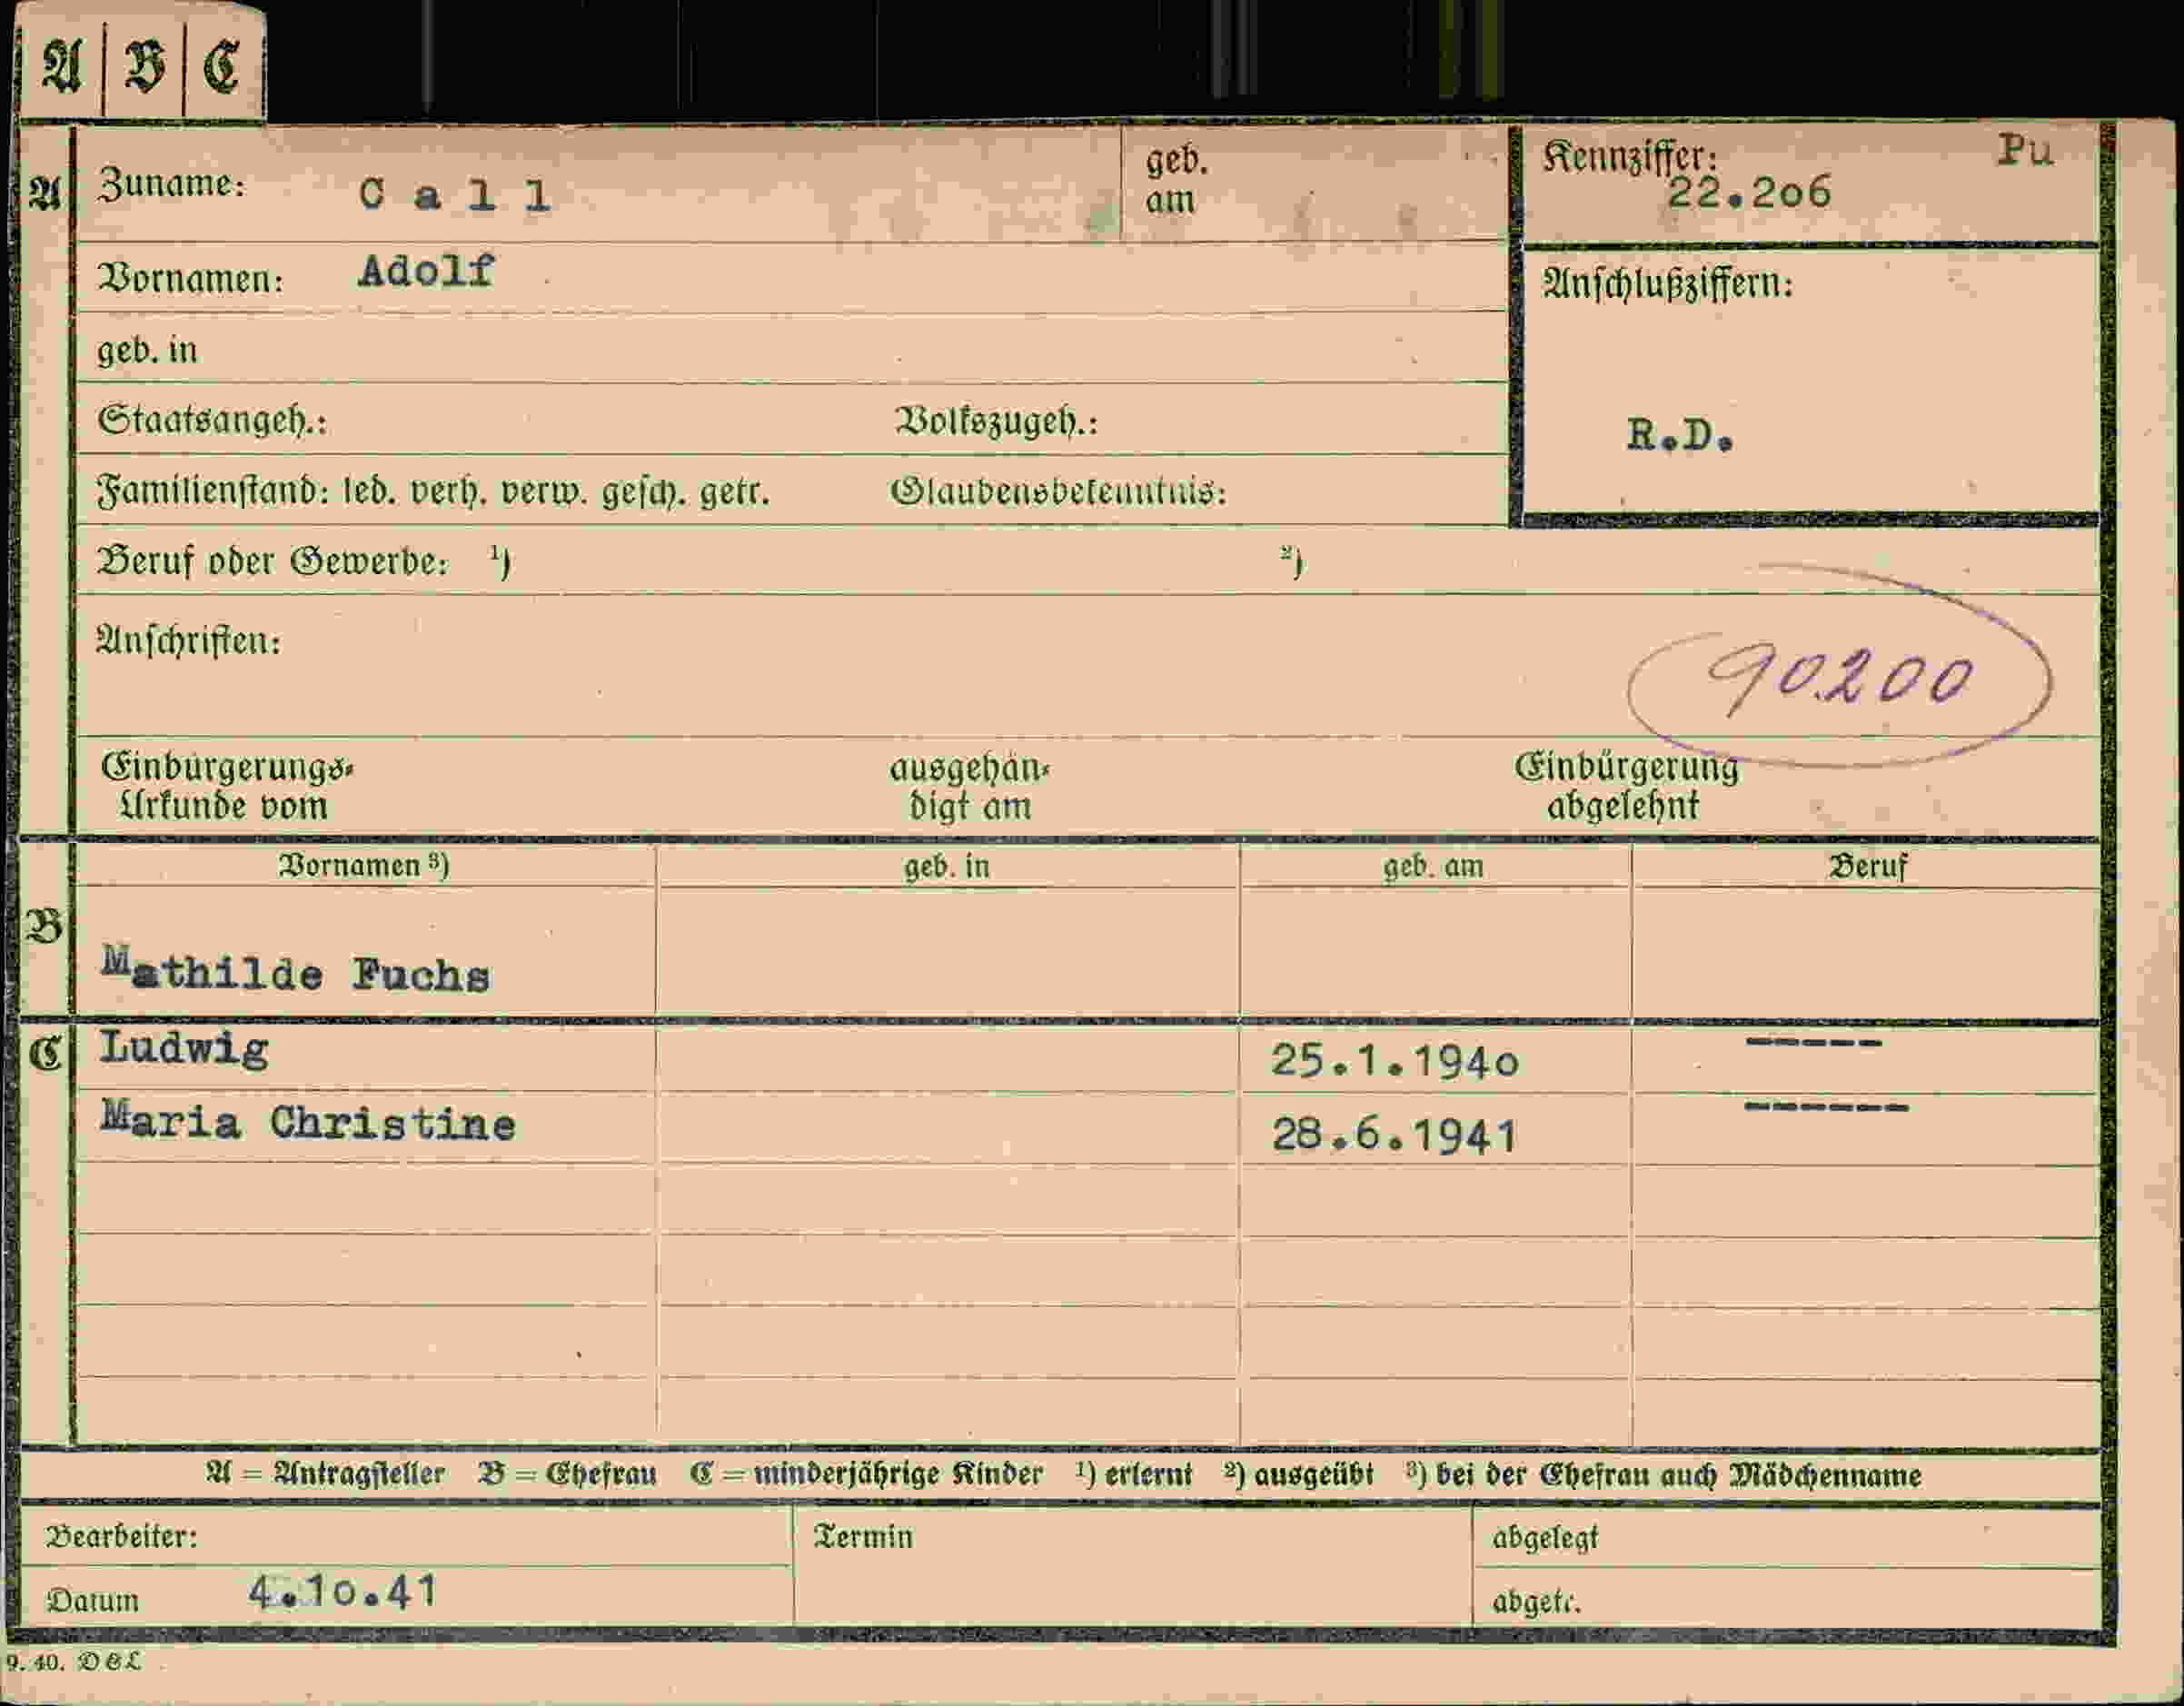 A | B | C
A Zuname: C a l l geb. am Kennziffer: Pu
22.2o6
Vornamen: Adolf Anschlußziffern:
geb. in
Staatsangeh.: Volkszugeh.: R.D.
Familienstand: led. verh. verw. gesch. getr. Glaubensbekenntnis:
Beruf oder Gewerbe: ¹) ²)
Anschriften: 90.200
Einbürgerungs- ausgehän- Einbürgerung
Urkunde vom digt am abgelehnt
Vornamen ³) geb. in geb. am Beruf
B
Mathilde Fuchs
C Ludwig 25.1.194o -----
Maria Christine 28.6.1941 ------
A = Antragsteller B = Ehefrau C = minderjährige Kinder ¹) erlernt ²) ausgeübt ³) bei der Ehefrau auch Mädchenname
Bearbeiter: Termin abgelegt
Datum 4.1o.41 abgetr.
9. 40. DGL